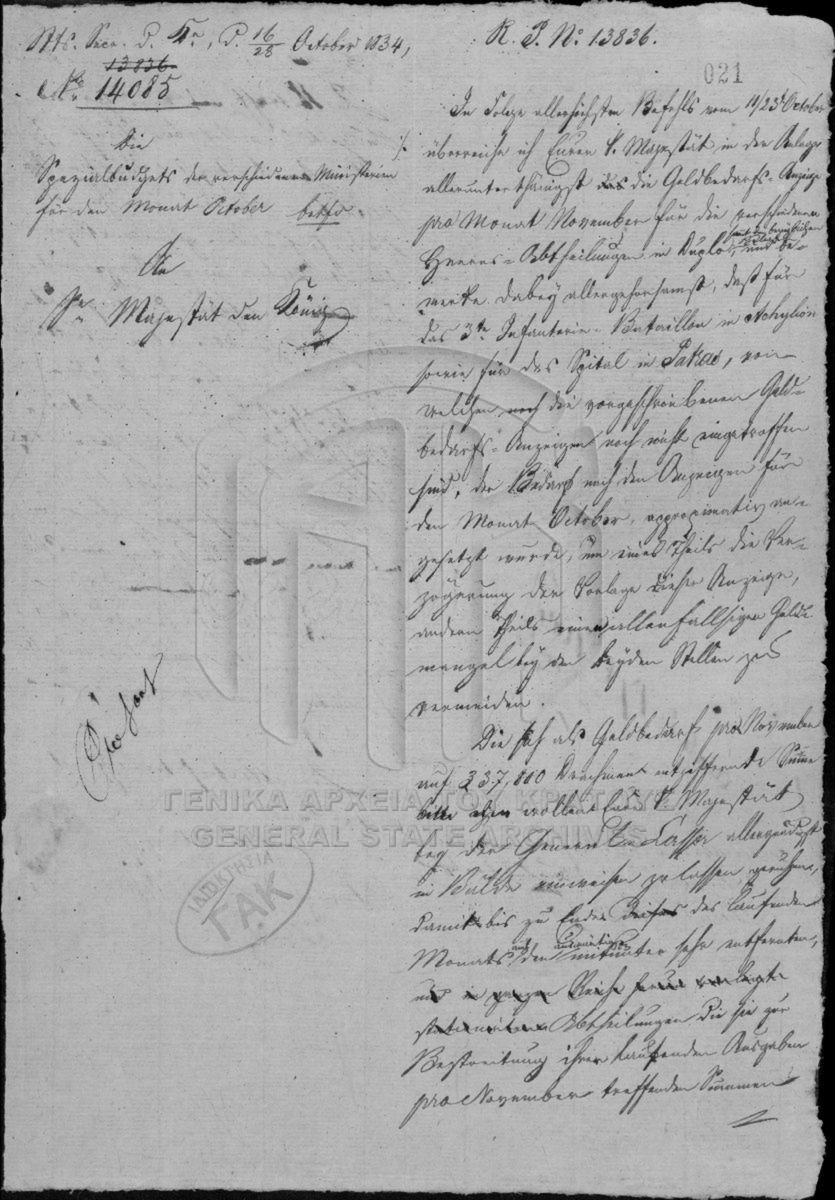 Sts. Secr. d. Kr., d. 16/28 October 1834,
13836
No. 14085
Die
Spezialbudgets der verschiedenen Ministerien
für den Monat October betfd.
An
Sr. Majestät den König
R. P. No. 13836.
021
In Folge allerhöchsten Befehls vom 11/23 October
überreiche ich Eurer K. Majestät in der Anlage
allerunterthänigst die Geldbedarfs-Anzeige
pro Monat November für die verschiedenen
Heeres-Abtheilungen in Duplo, und be-
merke dabey allergehorsamst, daß für
das 3te Infanterie-Bataillon in
sowie für das Spital in Patras, von
welchen noch die vorgeschriebenen Geld-
bedarfs-Anzeigen noch nicht eingetroffen
sind, der Bedarf nach den Anzeigen für
den Monat October, approximativ an-
gesetzt wurde, um eines Theils die Ver-
zögerung der Vorlage dieser Anzeige,
andern Theils einen allenfallsigen Geld-
mangel bey den beyden Stellen zu
vermeiden.
Die sich als Geldbedarf pro November
auf 337,000 Drachmen entziffernde Summe
bitte wollen Eure K. Majestät
bey der General Cassa allergnädigst
in Bälde anweisen zu lassen geruhen,
damit bis zu Ende dieses des laufenden
Monats den mitunter sehr entfernten,
und in ganzer Reihe
Abtheilungen die sie zur
Bestreitung ihrer laufenden Ausgaben
pro November treffenden Summen
ΓΕΝΙΚΑ ΑΡΧΕΙΑ ΤΟΥ ΚΡΑΤΟΥΣ
GENERAL STATE ARCHIVES
ΙΔΙΟΚΤΗΣΙΑ
ΓΑΚ